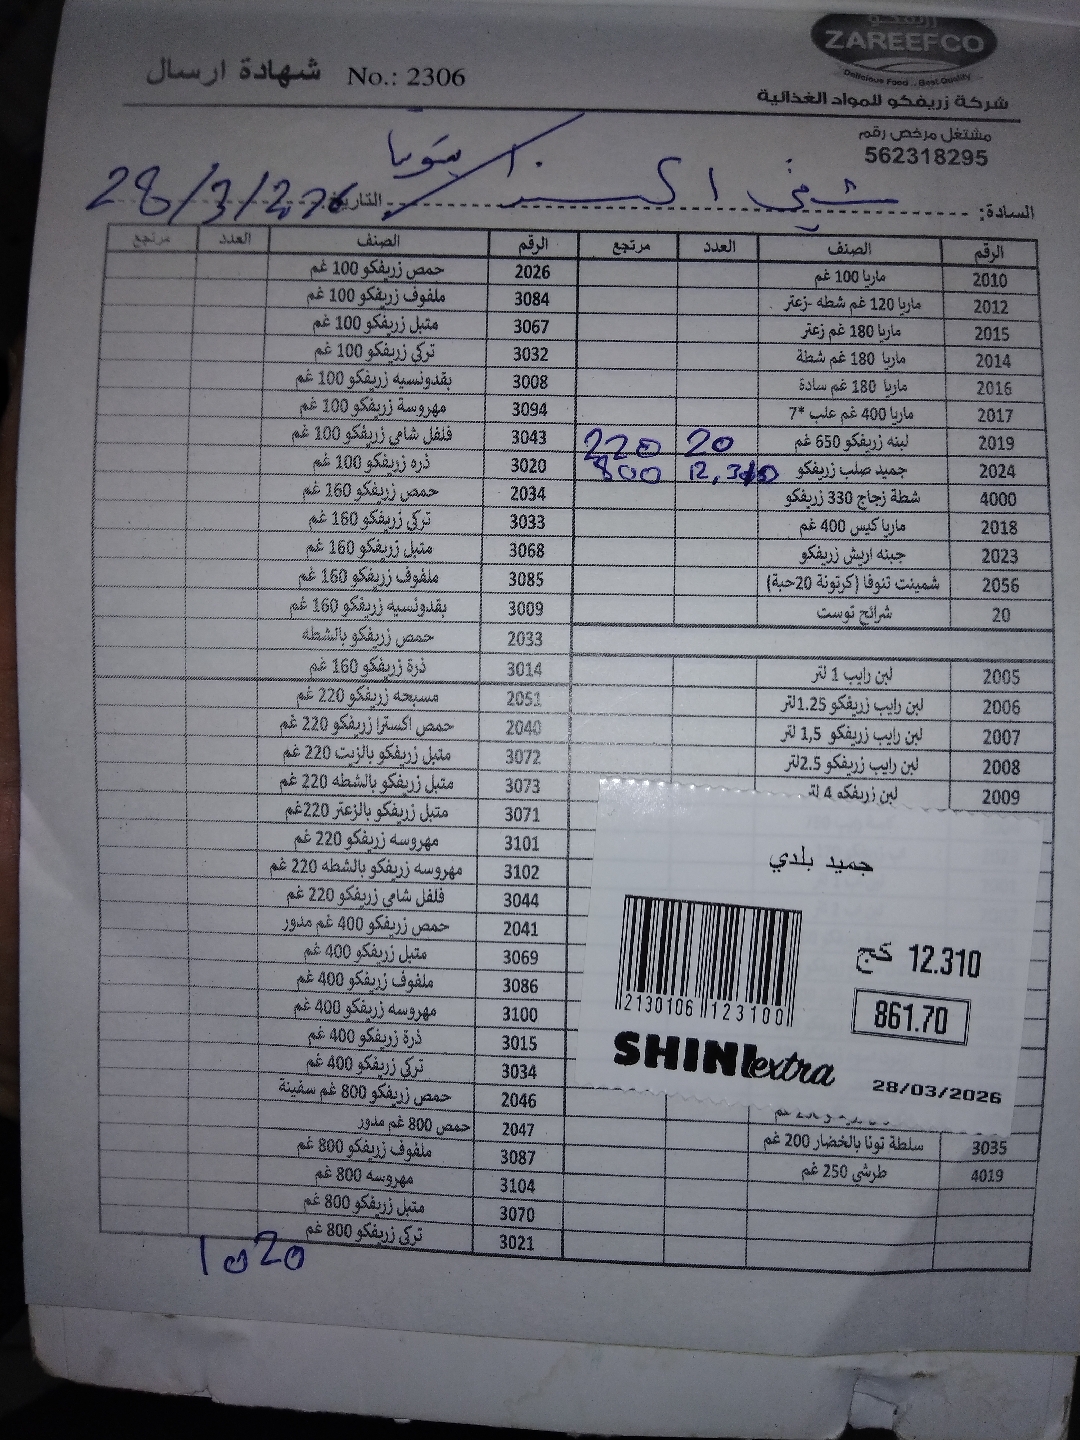 زريفكو
ZAREEFCO
Delicious Food... Best Quality
شهادة ارسال No.: 2306
شركة زريفكو للمواد الغذائية
مشتغل مرخص رقم
562318295
السادة: شيني اكسترا / بيتونيا التاريخ: 28/3/2026
الرقم الصنف العدد مرتجع الرقم الصنف العدد مرتجع
2010 ماريا 100 غم 2026 حمص زريفكو 100 غم
2012 ماريا 120 غم شطه -زعتر 3084 ملفوف زريفكو 100 غم
2015 ماريا 180 غم زعتر 3067 متبل زريفكو 100 غم
2014 ماريا 180 غم شطة 3032 تركي زريفكو 100 غم
2016 ماريا 180 غم سادة 3008 بقدونسيه زريفكو 100 غم
2017 ماريا 400 غم علب *7 3094 مهروسة زريفكو 100 غم
2019 لبنه زريفكو 650 غم 20 220 3043 فلفل شامي زريفكو 100 غم
2024 جميد صلب زريفكو 12,310 800 3020 ذره زريفكو 100 غم
4000 شطة زجاج 330 زريفكو 2034 حمص زريفكو 160 غم
2018 ماريا كيس 400 غم 3033 تركي زريفكو 160 غم
2023 جبنه اريش زريفكو 3068 متبل زريفكو 160 غم
2056 شمينت تنوفا (كرتونة 20حبة) 3085 ملفوف زريفكو 160 غم
20 شرائح توست 3009 بقدونسيه زريفكو 160 غم
2033 حمص زريفكو بالشطه
2005 لبن رايب 1 لتر 3014 ذرة زريفكو 160 غم
2006 لبن رايب زريفكو 1.25لتر 2051 مسبحه زريفكو 220 غم
2007 لبن رايب زريفكو 1,5 لتر 2040 حمص اكسترا زريفكو 220 غم
2008 لبن رايب زريفكو 2.5لتر 3072 متبل زريفكو بالزيت 220 غم
2009 لبن زريفكو 4 لتر 3073 متبل زريفكو بالشطه 220 غم
3071 متبل زريفكو بالزعتر 220غم
3101 مهروسه زريفكو 220 غم
3102 مهروسه زريفكو بالشطه 220 غم
3044 فلفل شامي زريفكو 220 غم
2041 حمص زريفكو 400 غم مدور
3069 متبل زريفكو 400 غم
3086 ملفوف زريفكو 400 غم
3100 مهروسه زريفكو 400 غم
3015 ذرة زريفكو 400 غم
3034 تركي زريفكو 400 غم
2046 حمص زريفكو 800 غم سفينة
2047 حمص 800 غم مدور
3035 سلطة تونا بالخضار 200 غم 3087 ملفوف زريفكو 800 غم
4019 طرشي 250 غم 3104 مهروسه 800 غم
3070 متبل زريفكو 800 غم
3021 تركي زريفكو 800 غم
1020
جميد بلدي
12.310 كج
861.70
2130106 123100
SHINI extra
28/03/2026